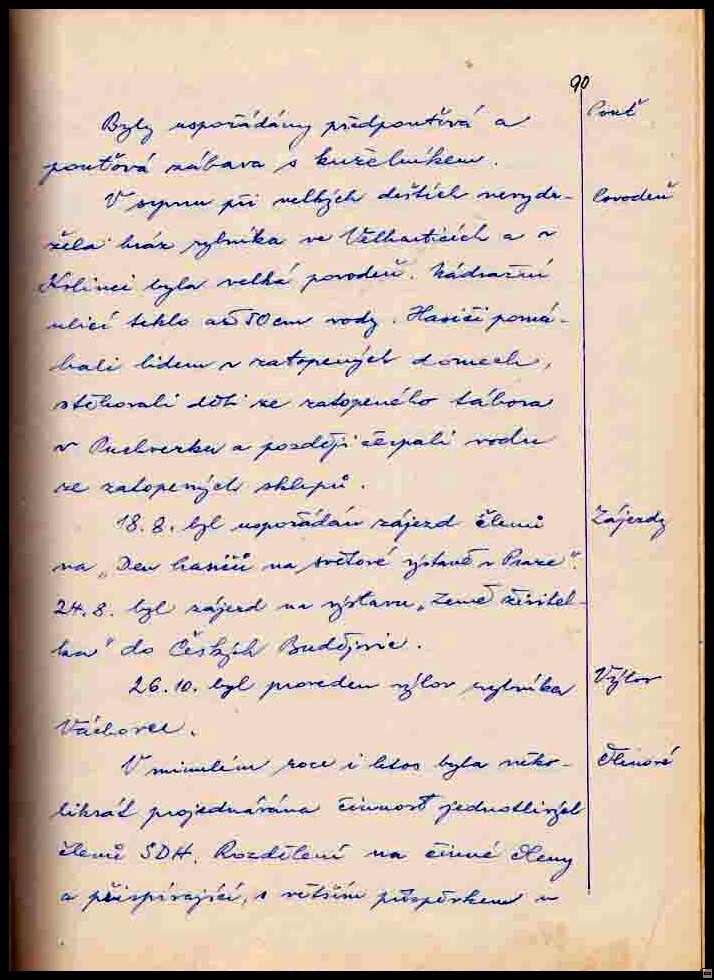 90
Byly uspořádány předpouťová a
Pouť
pouťová zábava s kuželníkem.
V srpnu při velkých deštích nevydr-
Povodeň
žela hráz rybníka ve Velharticích a v
Kolinci byla velká povodeň. Nádražní
ulicí teklo až 50 cm vody. Hasiči pomá-
hali lidem v zatopených domech,
stěhovali děti ze zatopeného tábora
v Puchverku a později čerpali vodu
ze zatopených sklepů.
18. 8. byl uspořádán zájezd členů
Zájezdy
na „Den hasičů na světové výstavě v Praze".
24. 8. byl zájezd na výstavu „Země živitel-
ka" do Českých Budějovic.
26. 10. byl proveden výlov rybníka
Výlov
Váchovec.
V minulém roce i letos byla něko-
Členové
likrát projednávána činnost jednotlivých
členů SDH. Rozdělení na činné členy
a přispívající, s větším příspěvkem u